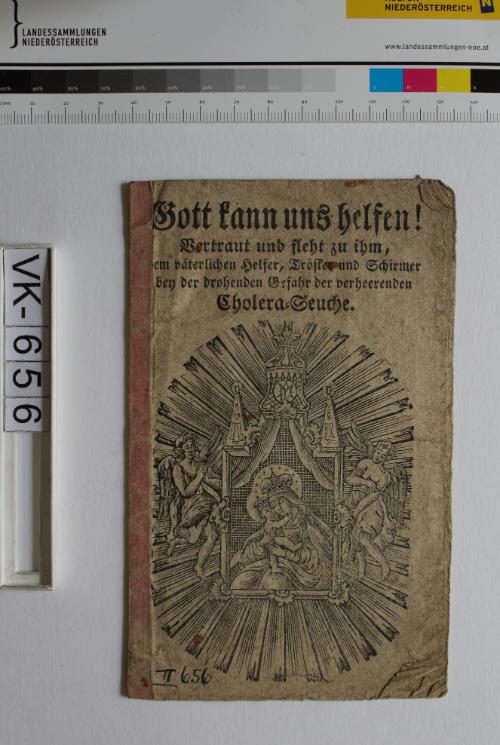 LANDESSAMMLUNGEN
NIEDERÖSTERREICH
NIEDERÖSTERREICH
www.landessammlungen-noe.at
VK-656
Gott kann uns helfen!
Vertraut und fleht zu ihm,
em väterlichen Helfer, Tröster und Schirmer
bey der drohenden Gefahr der verheerenden
Cholera-Seuche.
II 656